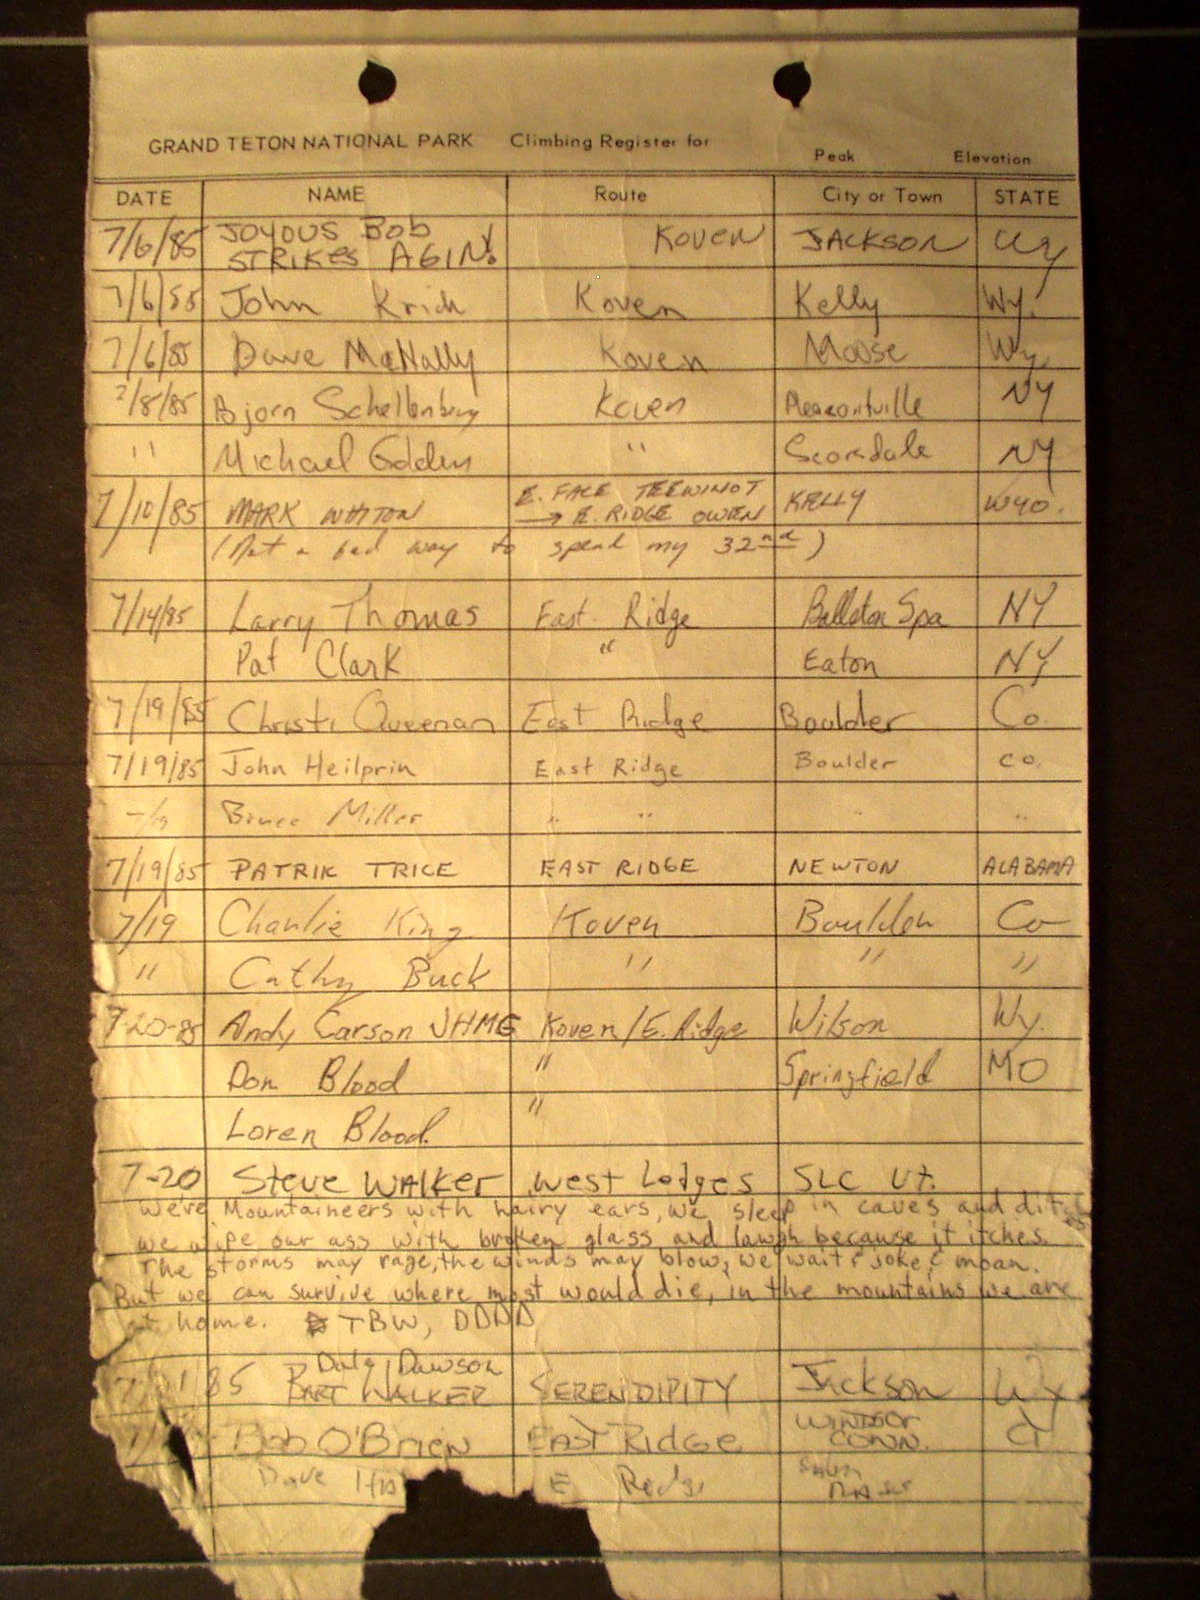 GRAND TETON NATIONAL PARK Climbing Register for Peak Elevation
DATE NAME Route City or Town STATE
7/6/85 JOYOUS BOB STRIKES AGIN! KOVEN JACKSON Wy
7/6/85 John Krich Koven Kelly Wy.
7/6/85 Dave McNally Koven Moose Wy.
7/8/85 Bjorn Schellenberg Koven NY
" Michael " Scarsdale NY
7/10/85 MARK WHITON E. FACE TEEWINOT → E. RIDGE OWEN KELLY WYO.
(Not a bad way to spend my 32nd)
7/14/85 Larry Thomas East Ridge Ballston Spa NY
Pat Clark " Eaton NY
7/19/85 Christi Queenan East Ridge Boulder Co.
7/19/85 John Heilprin East Ridge Boulder CO.
Bruce Miller " " " "
7/19/85 PATRIK TRICE EAST RIDGE NEWTON ALABAMA
7/19 Charlie King Koven Boulder Co
" Cathy Buck " " "
7-20-85 Andy Carson JHMG Koven/E. Ridge Wilson Wy.
Don Blood " Springfield MO
Loren Blood "
7-20 Steve WALKER West Ledges SLC Ut.
We're Mountaineers with hairy ears, we sleep in caves and
we wipe our ass with broken glass and laugh because it itches.
The storms may rage, the winds may blow, we wait & joke & moan.
But we can survive where most would die, in the mountains we are
at home. TBW, DDDD
Dale Dawson
85 BART WALKER SERENDIPITY Jackson Wy
Bob O'Brien EAST Ridge WINDSOR CONN. CT
Dave E Ridge MASS